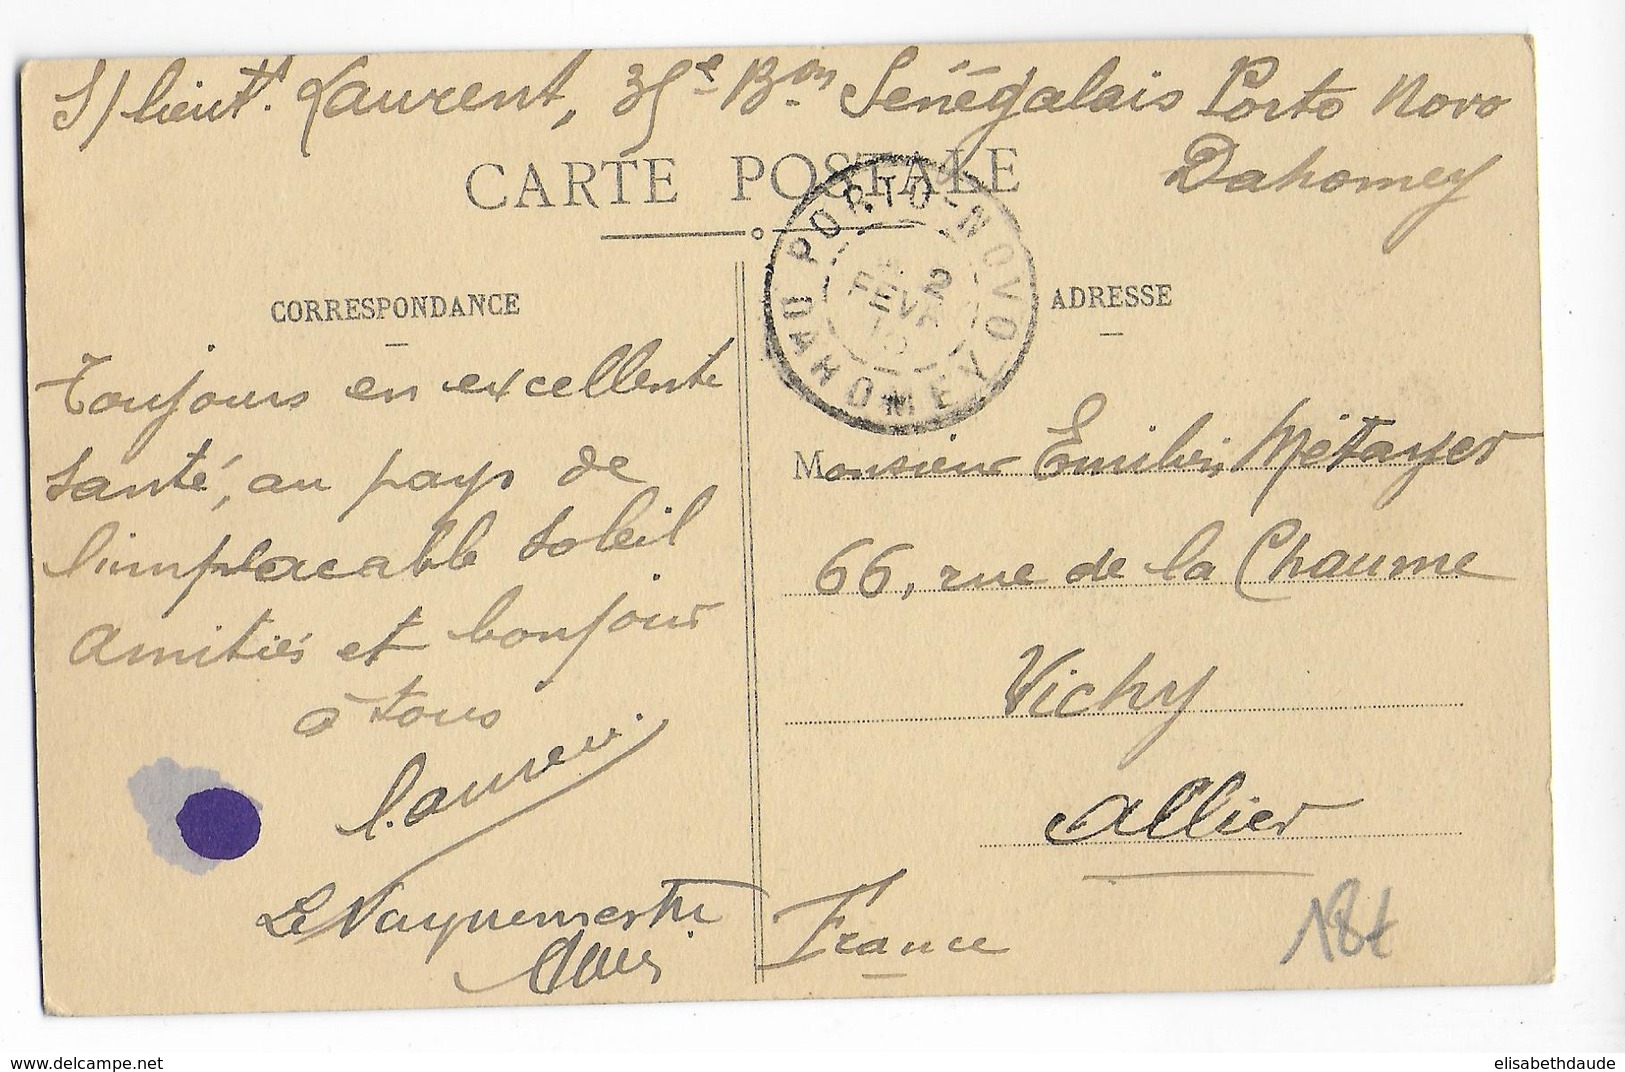 S/lieut.t Laurent, 35e Bon Sénégalais Porto Novo
Dahomey
CARTE POSTALE
PORTO-NOVO
DAHOMEY
2
FEVR
CORRESPONDANCE
ADRESSE
Toujours en excellente
santé, au pays de
l'implacable soleil
Amitiés et bonjour
à tous
Laurent
Le Vaguemestre
Monsieur Emilien Métayer
66, rue de la Chaume
Vichy
Allier
France
18€
delcampe.net
elisabethdaude